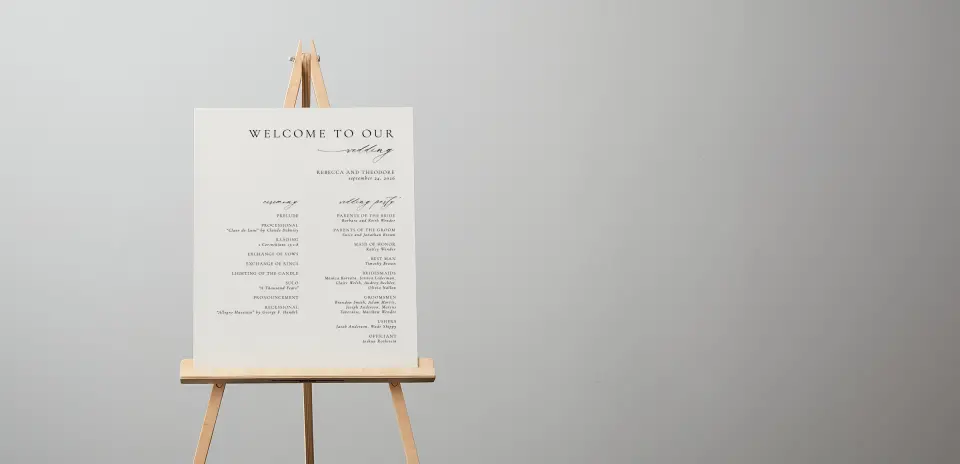 WELCOME TO OUR
wedding
REBECCA AND THEODORE
september 24, 2026
ceremony
PRELUDE
PROCESSIONAL
"Clare de Lune" by Claude Debussy
READING
1 Corinthians
EXCHANGE OF VOWS
EXCHANGE OF RINGS
LIGHTING OF THE CANDLE
SOLO
"A Thousand Years"
PRONOUNCEMENT
RECESSIONAL
"Allegro Maestoso" by George F. Handel
wedding party
PARENTS OF THE BRIDE
Barbara and Keith Wonder
PARENTS OF THE GROOM
Susie and Jonathan Brown
MAID OF HONOR
Kailey Wonder
BEST MAN
Timothy Brown
BRIDESMAIDS
Monica Jessica
Claire Welch, Audrey
Olivia
GROOMSMEN
Brandon Smith, Adam Morris,
Joseph Anderson, Marcus
Gonzalez, Matthew Wonder
USHERS
Jacob Anderson, Wade
OFFICIANT
Joshua